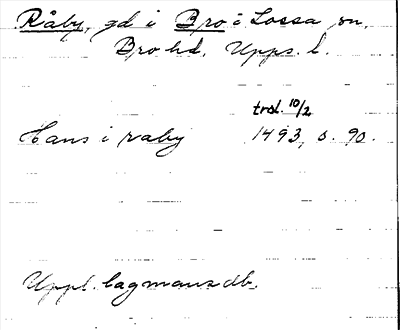 Råby, gd i Bro i Lossa sn.
Bro hd. Upps. l.
trol. 10/2
Hans i raby 1493, s. 90.
Uppl. lagmansdb.